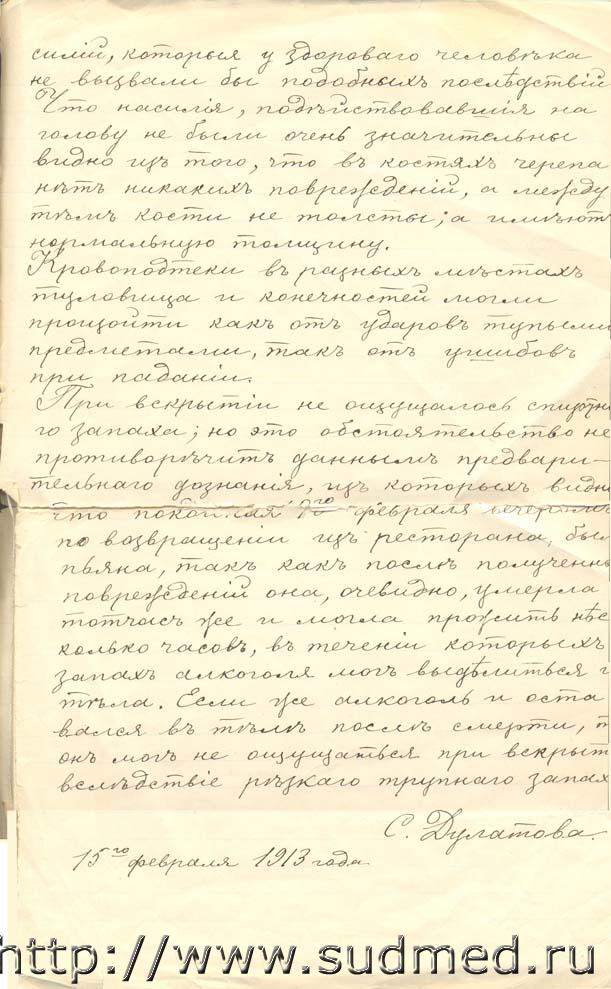 силій, которыя у здороваго человѣка
не вызвали бы подобныхъ послѣдствій
Что насилія, подѣйствовавшія на
голову не были очень значительны
видно изъ того, что въ костяхъ черепа
нѣтъ никакихъ поврежденій, а между
тѣмъ кости не толсты; а имѣютъ
нормальную толщину.
Кровоподтеки въ разныхъ мѣстахъ
туловища и конечностей могли
произойти какъ отъ ударовъ тупыми
предметами, такъ отъ ушибовъ
при паденіи.
При вскрытіи не ощущалось спиртна
го запаха; но это обстоятельство не
противорѣчитъ даннымъ предвари-
тельнаго дознанія, изъ которыхъ видно
что покойная февраля вечеромъ
по возвращеніи изъ ресторана, был
пьяна, такъ какъ послѣ полученны
поврежденій она, очевидно, умерла
тотчасъ же и могла прожить нѣс
колько часовъ, въ теченіи которыхъ
запахъ алкоголя могъ выдѣлиться
тѣла. Если же алкоголь и оста
вался въ тѣлѣ послѣ смерти, т
онъ могъ не ощущаться при вскрыт
вслѣдствіе рѣзкаго трупнаго запах
С. Дулатова.
15го февраля 1913 года
http://www.sudmed.ru